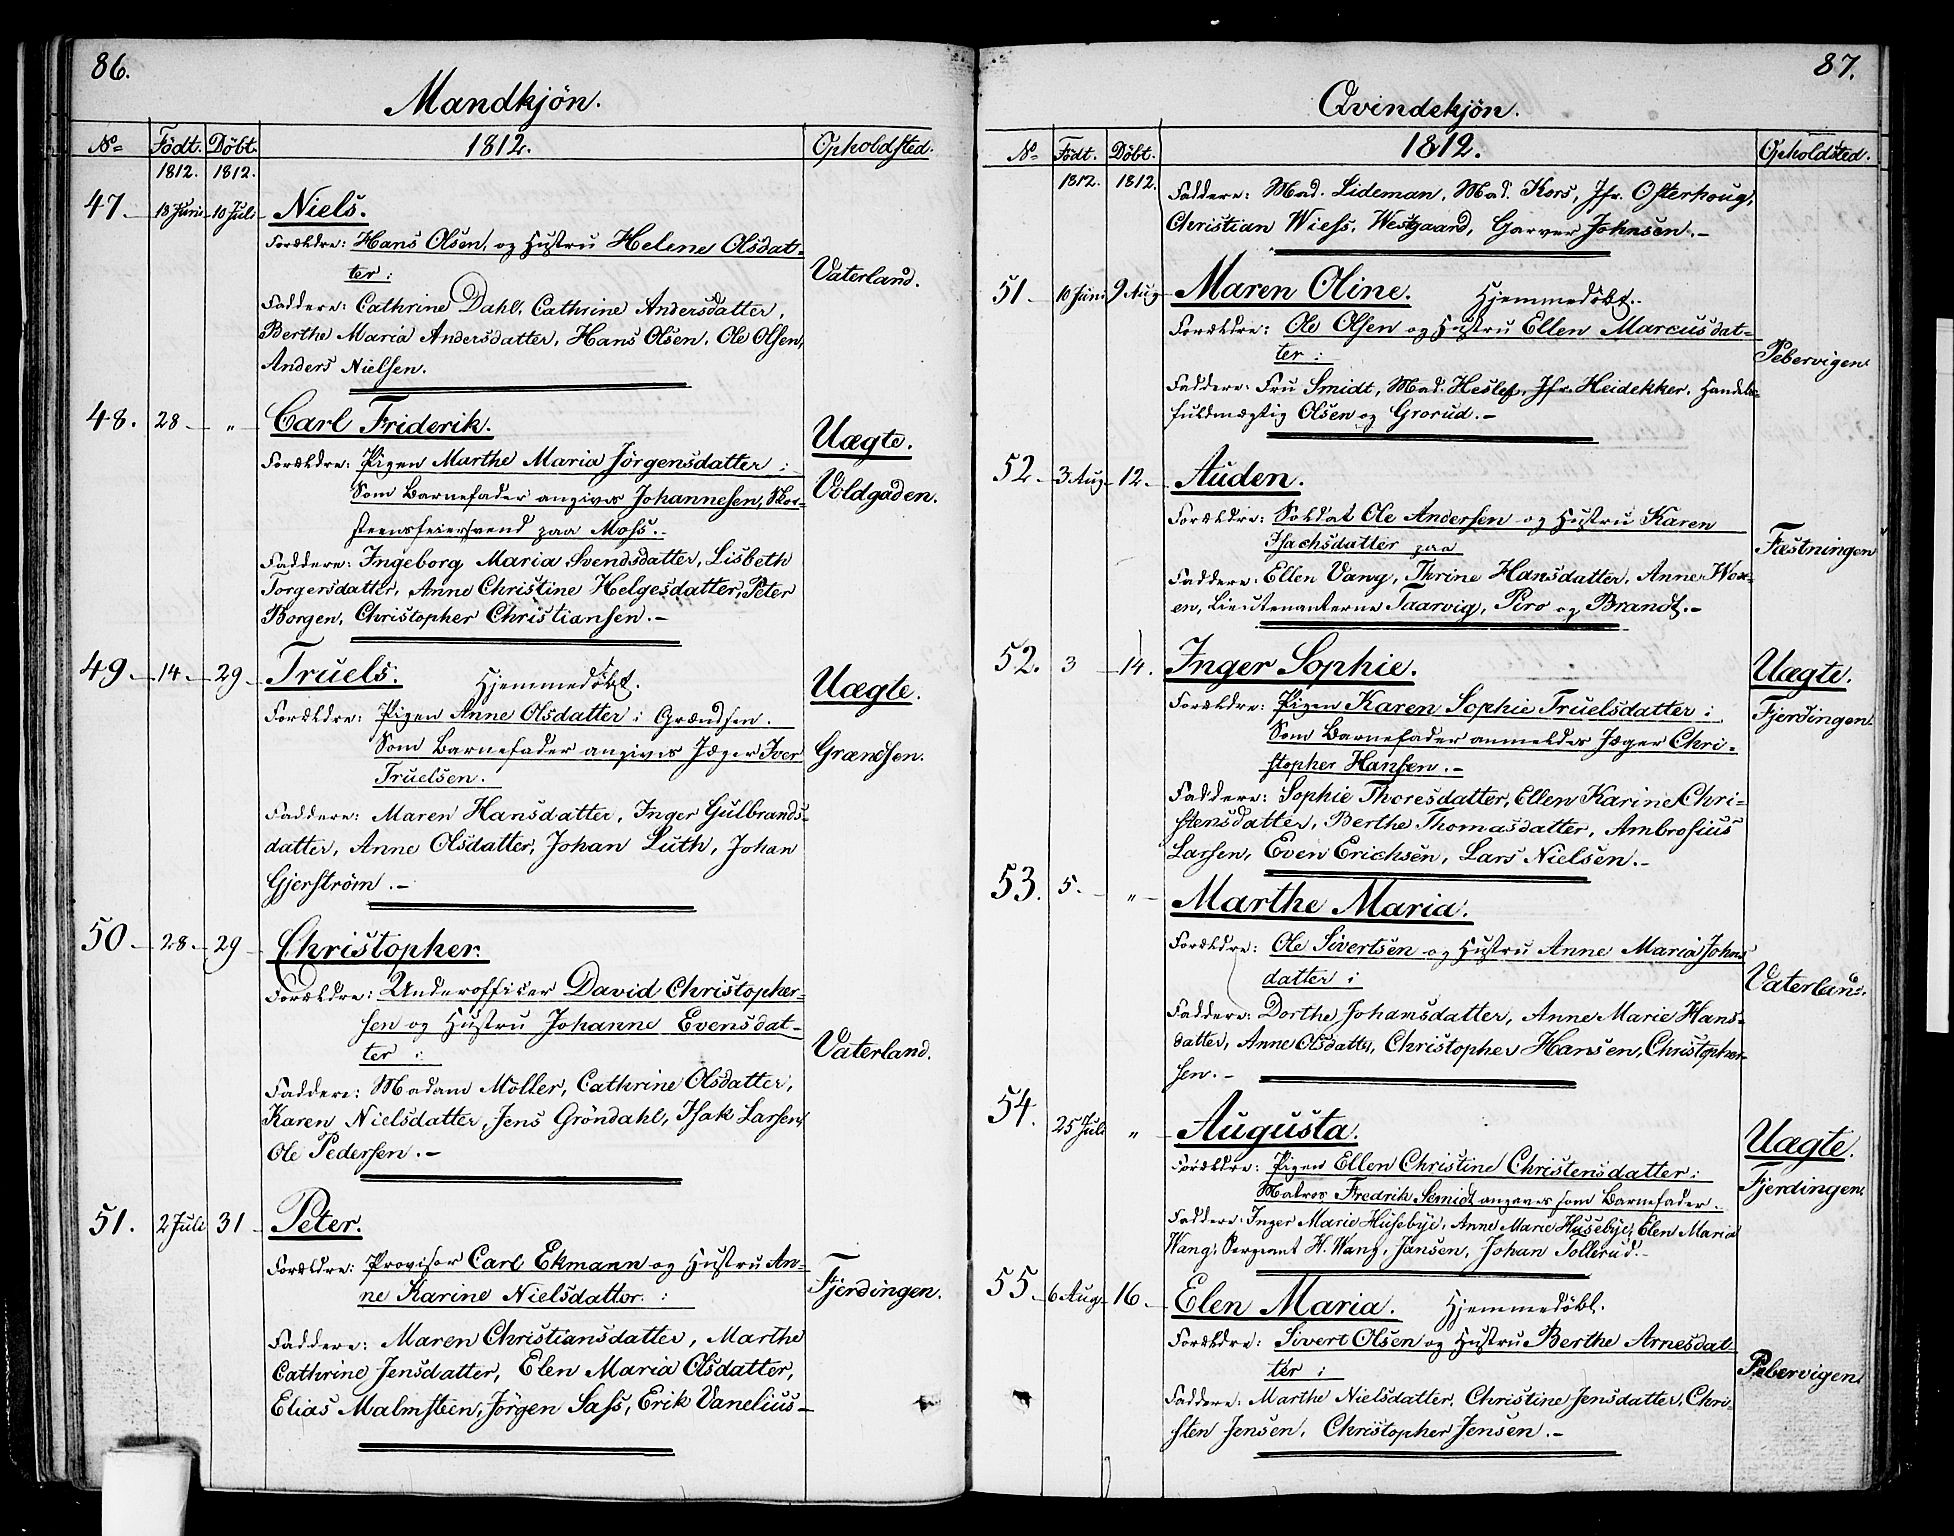 86.
Mandkjön.
No Födt. Döbt. 1812. Opholdsted.
1812. 1812.
47 18 Juni 10 Juli Niels.
Forældre: Hans Olsen, og Hustru Helene Olsdat-
ter i Vaterland.
Faddere: Cathrine Dahl, Cathrine Andersdatter,
Berthe Maria Andersdatter, Hans Olsen, Ole Olsen,
Anders Nielsen.
48. 28 " Carl Friderik. Uægte.
Forældre: Pigen Marthe Maria Jörgensdatter i Voldgaden.
Som Barnefader angives Johannesen, Skor-
steensfeiersvend paa Moss.-
Faddere: Ingeborg Maria Svendsdatter, Lisbeth
Torgersdatter, Anne Christine Helgesdatter, Peter
Borgen, Christopher Christiansen.-
49 14 29 Truels. Hjemmedöbt. Uægte.
Forældre: Pigen Anne Olsdatter i Grændsen.
Som Barnefader angives Jæger Iver Grændsen.
Truelsen.
Faddere: Maren Hansdatter, Inger Gulbrands-
datter, Anne Olsdatter, Johan Luth, Johan
Gjerström.-
50 28 29 Christopher.
Forældre: Underofficer David Christopher-
sen og Hustru Johanne Evensdat-
ter i Vaterland.
Faddere: Madam Möller, Cathrine Olsdatter,
Karen Nielsdatter, Jens Gröndahl, Isak Larsen,
Ole Pedersen.-
51. 2 Juli 31 Peter.
Forældre: Provisor Carl Ekmann og Hustru An-
ne Karine Nielsdatter : Fjerdingen.
Faddere: Maren Christiansdatter, Marthe
Cathrine Jensdatter, Elen Maria Olsdatter,
Elias Malmsteen, Jörgen Sass, Erik Vanelius-
87.
Qvindekjön.
No Födt. Döbt. 1812. Opholdsted.
1812. 1812.
Faddere: Mad. Lideman, Mad. Kors, Jfr. Osterhoug,
Christian Wiess, Westgaard, Garver Johnsen.-
51 10 Juni 9 Aug Maren Oline. Hjemmedöbt.
Forældre: Ole Olsen og Hustru Ellen Marcusdat-
ter i Pebervigen.
Faddere: Fru Smidt, Mad. Heslef, Jfr. Heidekker, Handels-
fuldmægtig Olsen og Grorud.-
52 3 Aug 12. Auden.
Forældre: Soldat Ole Andersen og Hustru Karen
Isachsdatter paa Fæstningen
Faddere: Ellen Vang, Thrine Hansdatter, Anne Wox-
en, Lieutenanterne Taarvig, Piro og Brandt.-
52. 3 14. Inger Sophie. Uægte.
Forældre: Pigen Karen Sophie Truelsdatter i Fjerdingen.
Som Barnefader anmeldes Jæger Chri-
stopher Hansen.-
Faddere: Sophie Thoresdatter, Ellen Karine Chri-
stensdatter, Berthe Thomasdatter, Ambrosius
Larsen, Even Erichsen, Lars Nielsen.-
53. 5. " Marthe Maria.
Forældre: Ole Sivertsen og Hustru Anne Maria Johns
datter i Vaterland.
Faddere: Dorthe Johamsdatter, Anne Marie Hans-
datter, Anne Olsdatter, Christopher Hansen, Christopher-
sen.-
54. 25 Juli " Augusta. Uægte.
Forældre: Pigen Ellen Christine Christensdatter i Fjerdingen.
Matros Fredrik Semidt angives som Barnefader.
Faddere: Inger Marie Husebye, Anne Marie Husebye, Elen Maria
Wang, Sergeant H. Wang, Jansen, Johan Tollerud.-
55 6 Aug 16 Elen Maria. Hjemmedöbt.
Forældre: Sivert Olsen og Hustru Berthe Arnesdat-
ter i Pebervigen.
Faddere: Marthe Nielsdatter, Christine Jensdatter, Chri-
sten Jensen, Christopher Jensen.-